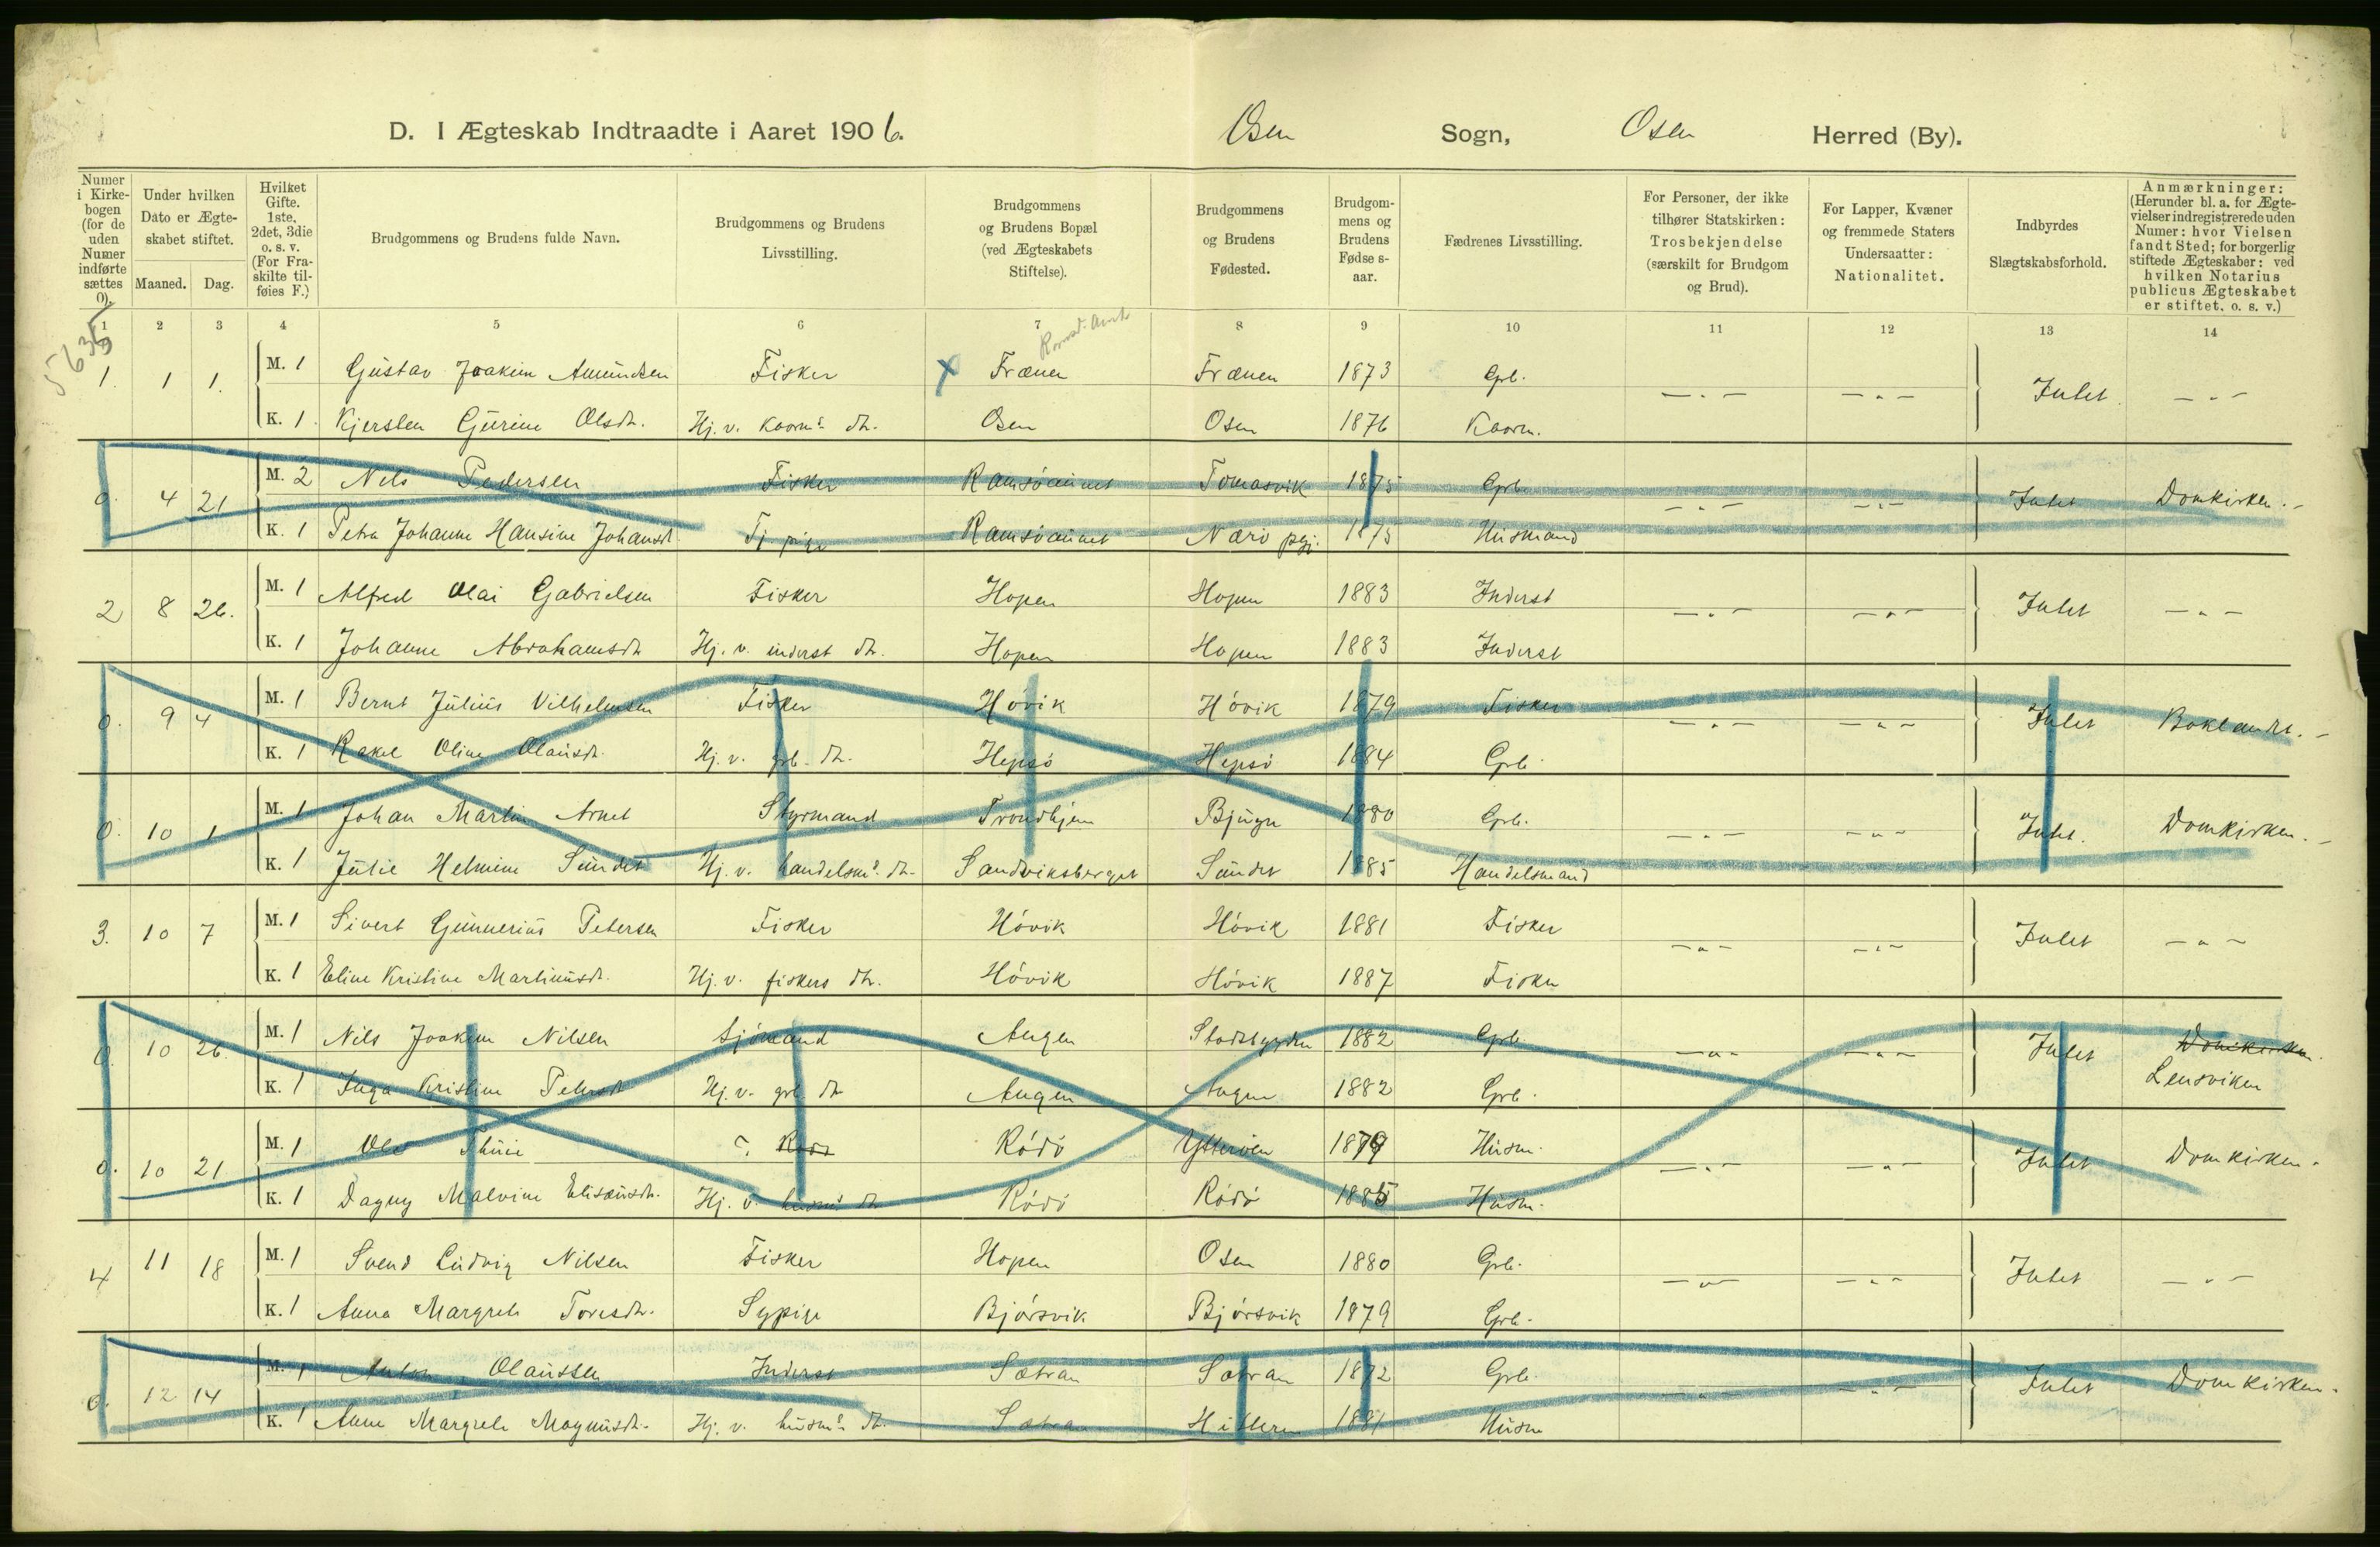 D. I Ægteskab Indtraadte i Aaret 1906. Osen Sogn, Osen Herred (By).
Numer i Kirkebogen (for de uden Numer indførte sættes 0).
Under hvilken Dato er Ægteskabet stiftet.
Maaned. Dag.
Hvilket Gifte. 1ste, 2det, 3die o. s. v. (For Fraskilte tilføies F.)
Brudgommens og Brudens fulde Navn.
Brudgommens og Brudens Livsstilling.
Brudgommens og Brudens Bopæl (ved Ægteskabets Stiftelse).
Brudgommens og Brudens Fødested.
Brudgommens og Brudens Fødselsaar.
Fædrenes Livsstilling.
For Personer, der ikke tilhører Statskirken: Trosbekjendelse (særskilt for Brudgom og Brud).
For Lapper, Kvæner og fremmede Staters Undersaatter: Nationalitet.
Indbyrdes Slægtskabsforhold.
Anmærkninger: (Herunder bl. a. for Ægtevielser indregistrerede uden Numer: hvor Vielsen fandt Sted; for borgerlig stiftede Ægteskaber: ved hvilken Notarius publicus Ægteskabet er stiftet, o. s. v.)
1 2 3 4 5 6 7 8 9 10 11 12 13 14
5635
Romsd. Amt
1. 1 1. M. 1 Gustav Joakim Amundsen Fisker x Frænen Frænen 1873 Grb. — " — — " — Intet — " —
K. 1 Kjersten Gurine Olsdtr. Hj. v. kaarms dtr. Osen Osen 1876 Kaarm.
0. 4 21 M. 2 Nels Pedersen Fisker Ramsöaunet Tomasvik 1875 Grb. — " — — " — Intet Domkirken. —
K. 1 Petra Johanne Hansine Johansdtr. Tj. pige Ramsöaunet Nærö pgj. 1875 Husmand
2 8 26. M. 1 Alfred Olai Gabrielsen Fisker Hopen Hopen 1883 Inderst — " — — " — Intet — " —
K. 1 Johanne Abrahamsdtr Hj. v. inderst dtr. Hopen Hopen 1883 Inderst
0. 9 4 M. 1 Bernt Julius Vilhelmsen Fisker Hövik Hövik 1879 Fisker — " — — " — Intet Boklandet. —
K. 1 Rakel Oline Olausdtr. Hj. v. grb. dtr. Hepsö Hepsö 1884 Grb.
0. 10 1 M. 1 Johan Martin Arnet Styrmand Trondhjem Bjugn 1880 Grb. — " — — " — Intet. Domkirken. —
K. 1 Julie Helmine Sundet Hj. v. handelsms dtr. Sandviksberget Sundet 1885 Handelsmand
3. 10 7 M. 1 Sivert Gunnerius Petersen Fisker Hövik Hövik 1881 Fisker — " — — " — Intet — " —
K. 1 Eline Kristine Martinusdtr. Hj. v. fiskers dtr. Hövik Hövik 1887 Fisker
0. 10 26. M. 1 Nils Joakim Nilsen Sjömand Angen Stadsbygden 1882 Grb. — " — — " — Intet Domkirken.
K. 1 Inga Kristine Petersdtr Hj. v. grb. dtr Angen Angen 1882 Grb. Lensviken
0. 10 21 M. 1 Ole Thuie ? Rödö Ytterøen 1879 Husm. — " — — " — Intet Domkirken.
K. 1 Dagny Malvine Elisæusdtr. Hj. v. husms dtr Rödö Rödö 1885 Husm.
4 11 18 M. 1 Svend Ludvig Nilsen Fisker Hopen Osen 1880 Grb. — " — — " — Intet — " —
K. 1 Anna Margrete Toresdtr. Sypige Bjørsvik Bjørsvik 1879 Grb.
0. 12 14 M. 1 Anton Olaussen Inderst Sætran Sætran 1872 Grb. — " — — " — Intet Domkirken.
K. 1 Anne Margrete Magnusdtr. Hj. v. husms dtr. Sætran Hitteren 1881 Husm